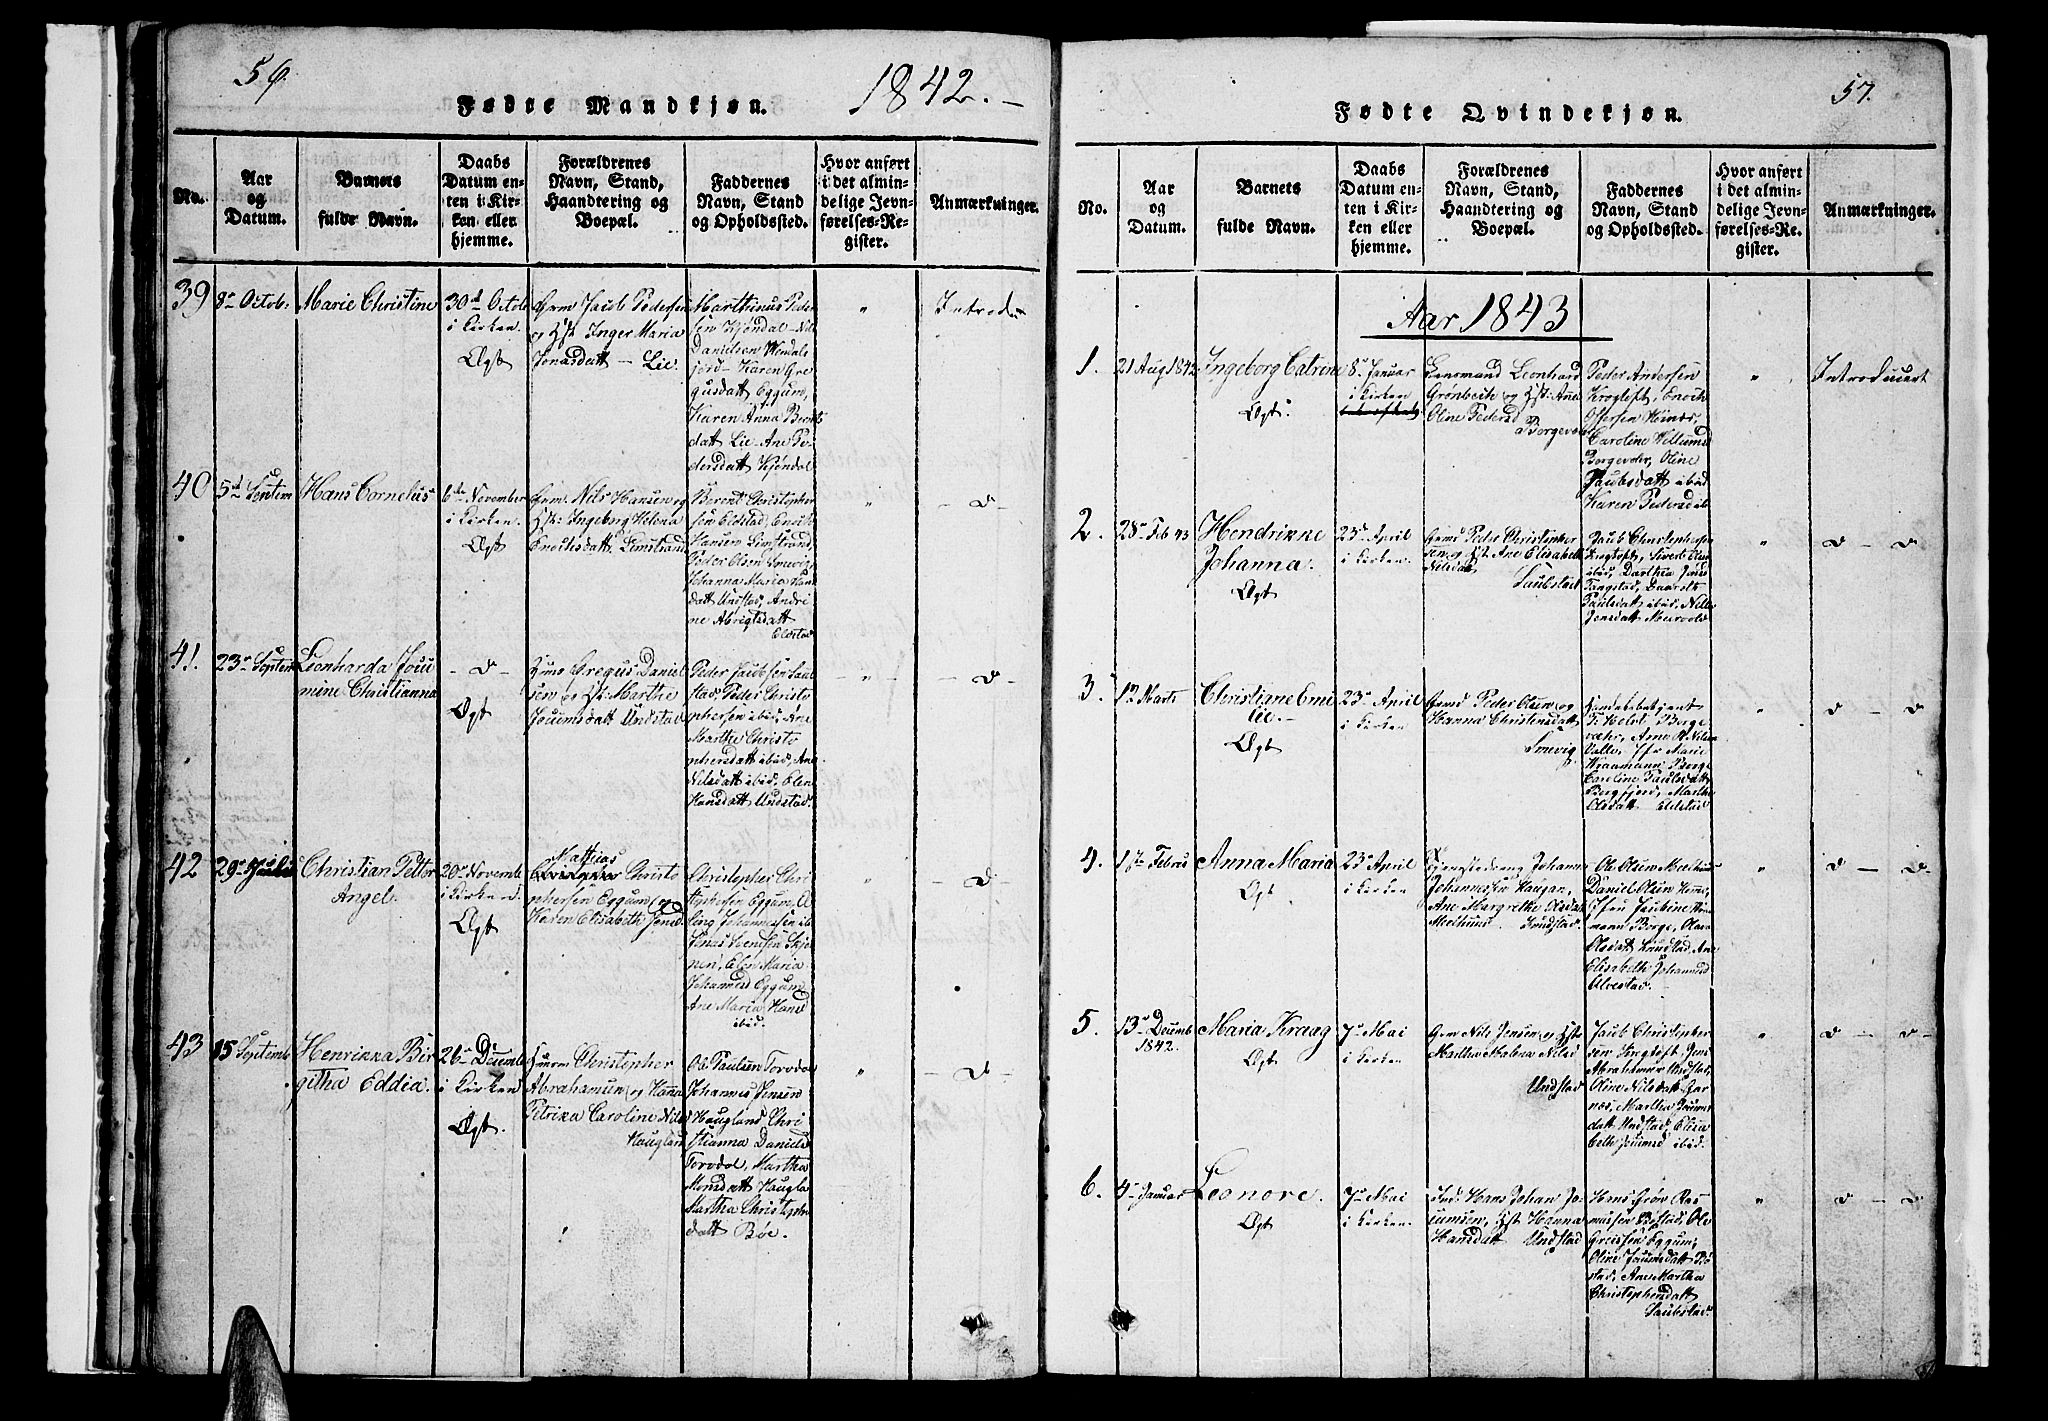 56.
1842.
Fødte Mandkjøn.
No.
Aar
og
Datum.
Barnets
fulde Navn.
Daabs
Datum en-
ten i Kir-
ken eller
hjemme.
Forældrenes
Navn, Stand,
Haandtering og
Boepæl.
Faddernes
Navn, Stand
og Opholdssted.
Hvor anført
i det almin-
delige Jevn-
førelses-Re-
gister.
Anmærkninger.
39
8de Octob.
Marie Christine
30d Octob
i Kirken
Ægt
Jacob Pedersen
og Inger Maria
Jonasdatt — Lie.
Marthinus Peder
sen Kjøndal — Nils
Danielsen Wendals
jord — Karen Gre
gusdatt Eggum,
Karen Anna Berndts
datt Lie — Ane Pe
dersdatt Kjøndal
"
Introd
40
5d Septem
Hans Cornelius
6te November
i Kirken.
Ægt
Nils Hansen og
Hst: Ingeborg Helena
Enochsdatt. Limstrand
Berent Christopher
sen Eldstad, Enoch
Hansen Limstrand,
Peder Olsen Smevig
Johanna Maria Han
datt Undstad, Andri
ne Abrigtsdatt
Eldstad
"
— d —
41.
23de Septem
Leonharda Jocu
mine Christianna
— d —
Ægt
Gregus Daniel
sen og Hst: Marthe
Jocumsdatt Undstad
Peder Jacobsen Saub
stad, Peder Christo
phersen ibid, Ane
Marthe Christo
phersdatt ibid, Ane
Nilsdatt ibid, Elen
Hansdatt Undstad.
"
— d —
42
29de
Christian Petter
Angel.
20de Novemb
i Kirken.
Ægt
Mattias
Christo
phersen Eggum og
Karen Elisabeth Jensd
Christopher Chri
stophersen Eggum, El
ling Johannessen ib
Jonas Svendsen Skje
nen, Elen Maria
Johannesd Eggum
Ane Maria Hansd
ibid.
"
— d —
43
15 Septemb
Henrikka Bir
githa Eddia.
26de Decemb
i Kirken
Ægt.
Christopher
Abrahamsen og Hanna
Petrika Caroline Nils
Haugland
Ole Paulsen Torvdal
Johannes Jensen
Haugland, Chri
stianna Daniels
Torvdal, Martha
Monsdatt Haugla
Martha Christophe
datt Bøe.
"
— d —
57.
Fødte Qvindekjøn.
No.
Aar
og
Datum.
Barnets
fulde Navn.
Daabs
Datum en-
ten i Kir-
ken eller
hjemme.
Forældrenes
Navn, Stand,
Haandtering og
Boepæl.
Faddernes
Navn, Stand
og Opholdssted.
Hvor anført
i det almin-
delige Jevn-
førelses-Re-
gister.
Anmærkninger.
Aar 1843
1.
21 Aug 1842
Ingeborg Catrine
Ægt.
8de Januar
i Kirken
Leonhard
Grønbech og Hst: Ane
Oline Pedersd
Borgevær
Peder Andersen
Krogtoft, Enoch
Offersen Wænes,
Caroline Willumsd
Borgevær, Oline
Jacobsdatt ibid
Karen Pedersd ib
"
Introduceret
2.
28de Feb 43
Hendrikke
Johanna.
Ægt
23de April
i Kirken.
Peder Christopher
sen og Hst Ane Elisabeth
Nilsdat
Saubstad
Jacob Christophersen
Krogtoft, Sivert Olsen
ibid, Darthea Jensd
Tangstad,
Paulsdatt ibid, Nille
Jensdatt Mærvold
"
d — d
3.
12 Marts
Christiane Emi
lie. —
Ægt
23de April
i Kirken
Peder Olsen og
Hanna Christensdatt
Smevig
Handelsbetjent
Held Borge
vær, Arne A Nilsen
Valle, Marie
Wraamann Borge
Caroline Paulsdatt
Borgfjord, Marthe
Olsdatt. Eldstad
"
d — d
4.
17de Febru
Anna Maria
Ægt.
23de April
i Kirken
Tjenestedreng Johann
Johannessen Haugan,
Ane Margrethe Olsdatt
Meelhuus. Knudstad.
Ole Olsen Meelhuus
Daniel Olsen
Jacobine Wra
mann Borge, Olava
Olsdatt Knudstad, Ane
Elisabeth Johannesd
Alvestad.
"
d — d.
5.
13de Decemb
1842.
Maria Kraag
Ægt.
7de Mai
i Kirken
Nils Jensen og Hst
Martha Malena Nilsd
Undstad
Jacob Christopher
sen Lingtoft, Jens
Abrahamsen Undstad,
Oline Nilsdatt Jar
næs, Martha Jocums
datt Undstad, Elisa
beth Jocumsd ibid.
"
d — d
6.
4de Januar
Leonore.
Ægt
7de Mai
i Kirken.
Ind: Hans Johan Jo
cumsen, Hst Hanna
Hansdatt Undstad
Hans Grøn Ras
mussen Bøstad, Ole
Greissen Eggum,
Oline Jocumsdatt Bø
stad, Ane Martha
Christophersdatt
Saubstad.
"
d — d